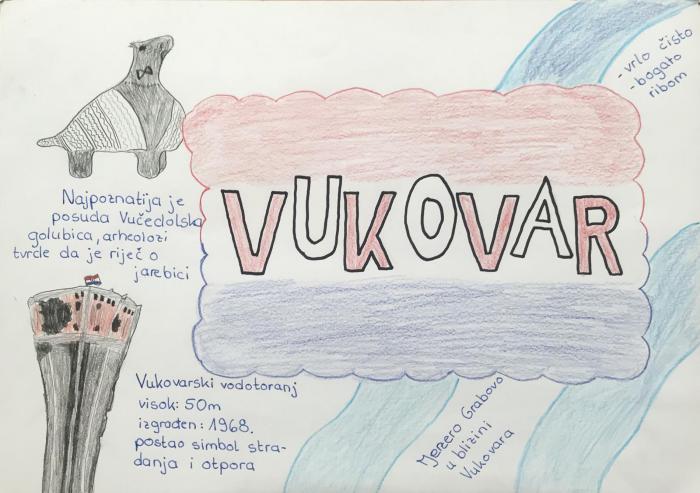 - vrlo čisto
- bogato
ribom
VUKOVAR
Najpoznatija je
posuda Vučedolska
golubica, arheolozi
tvrde da je riječ o
jarebici
Vukovarski vodotoranj
visok: 50m
izgrađen: 1968.
postao simbol stra-
danja i otpora
Jezero Grabovo
u blizini
Vukovara